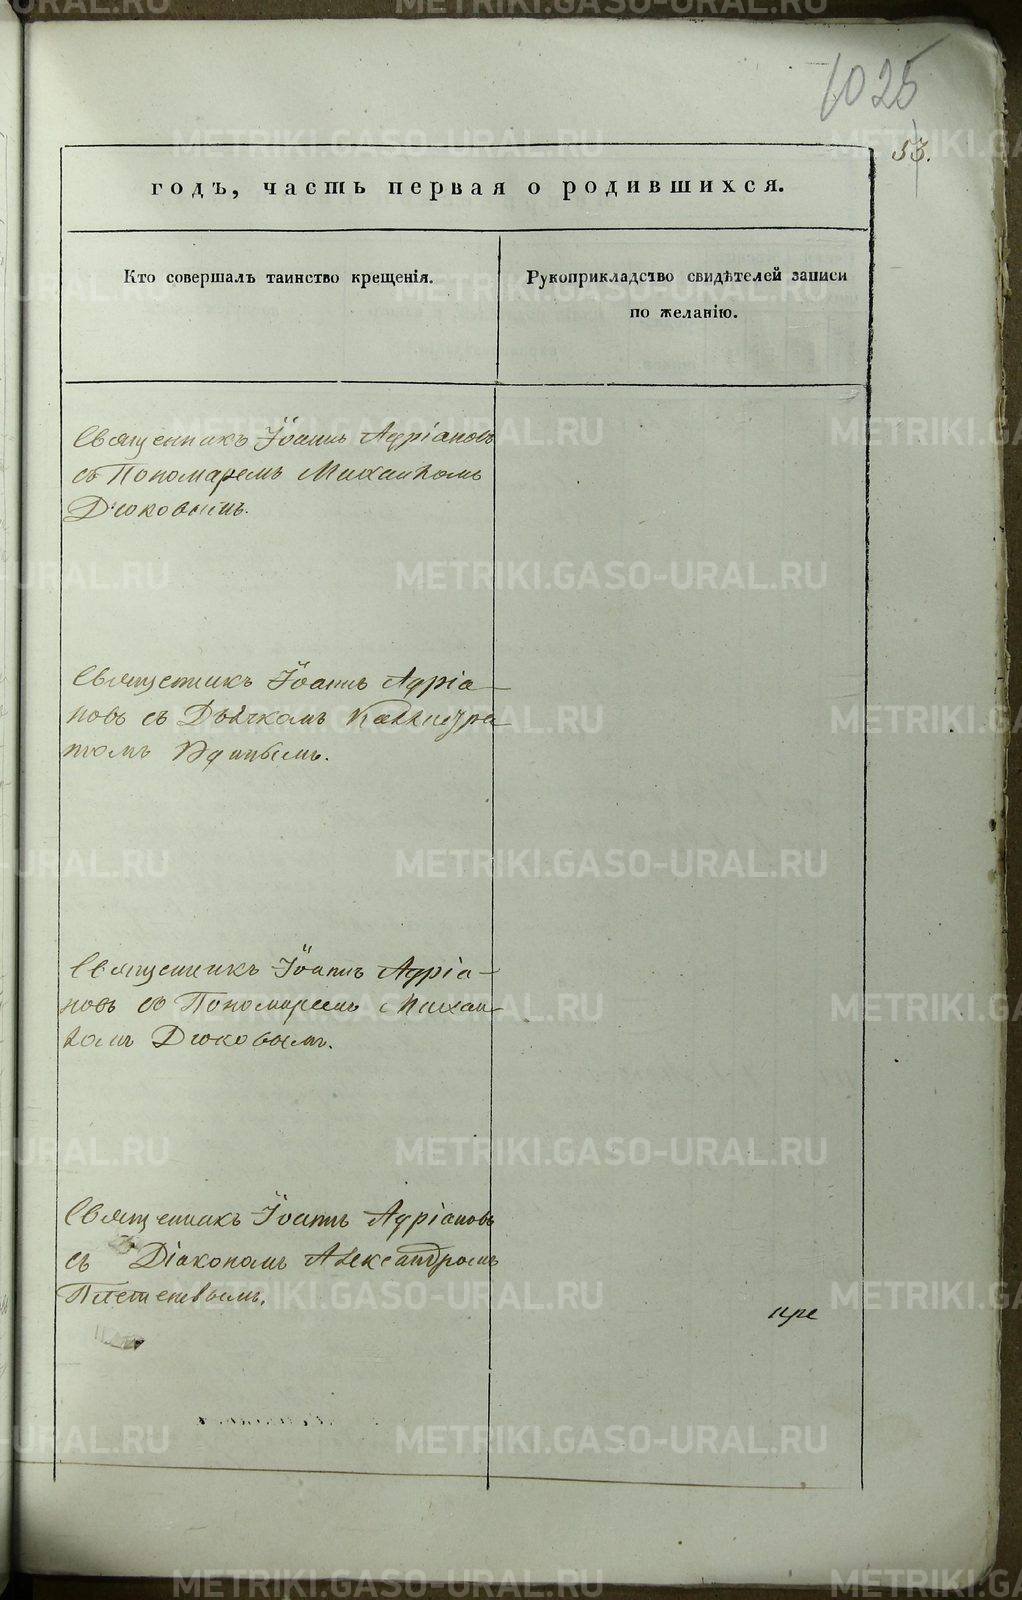 1025
53.
годъ, часть первая о родившихся.
Кто совершалъ таинство крещенія.
Рукоприкладство свидѣтелей записи
по желанію.
Священникъ Іоаннъ Адріановъ
съ Пономаремъ Михаиломъ
Дюковымъ.
Священникъ Іоаннъ Адріа-
новъ съ Дьячкомъ
Священникъ Іоаннъ Адріа-
новъ съ Пономаремъ Михаи-
ломъ Дюковымъ.
Священникъ Іоаннъ Адріановъ
съ Діакономъ Александромъ
пре
METRIKI.GASO-URAL.RU